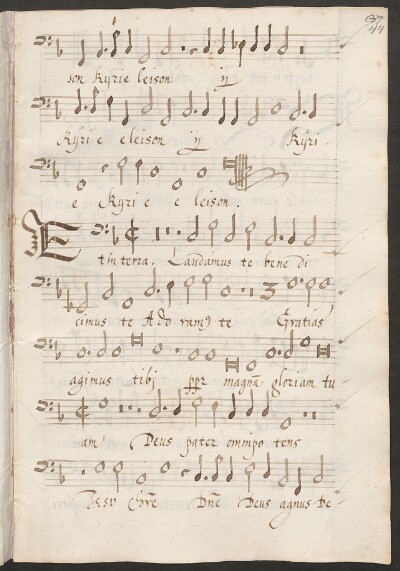 44
son Kyrie leison ij
Kyrie eleison ij Kyri-
e Kyrie e leison.
Et in terra. Laudamus te bene di
cimus te Ado ramꝰ te Gratias
agimus tibj ppr magnã gloriam tu-
am Deus pater omnipo tens
Iesu Chrẽ Dñe Deus agnus De-